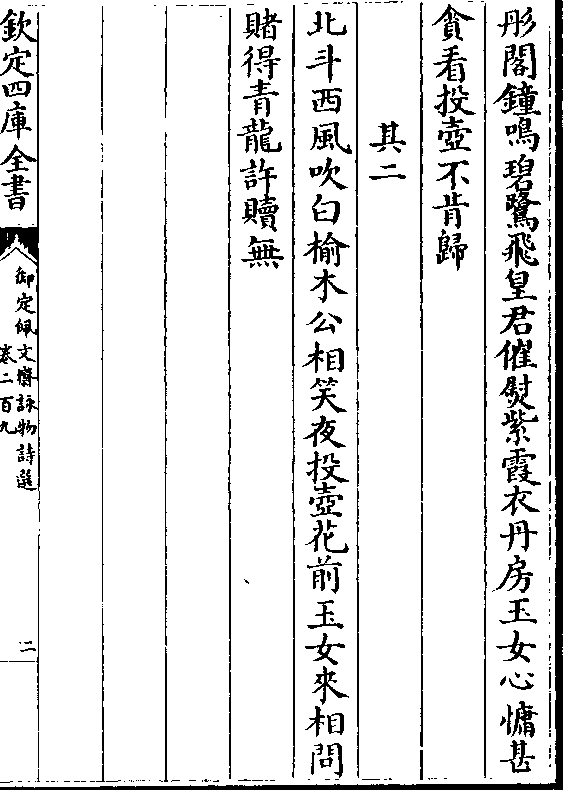 彤閣鐘鳴碧鷺飛皇君催熨紫霞衣丹房玉女心慵甚
貪看投壺不肯歸
其二
北斗西風吹白榆木公相笑夜投壺花前玉女來相問
賭得青龍許贖無
欽定四庫全書
御定佩文齋詠物詩選
卷二百九
二